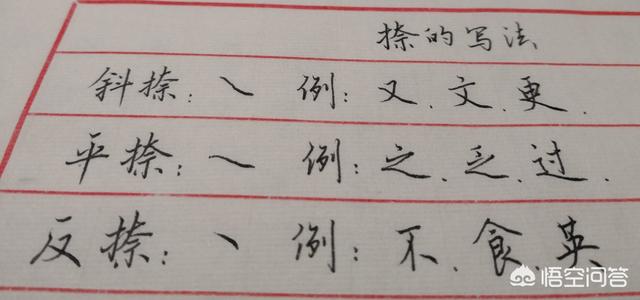 捺的写法
斜捺：㇏ 例：又、文、更.
平捺：㇏ 例：之、乏、过.
反捺：㇔ 例：不、食、英
悟空问答